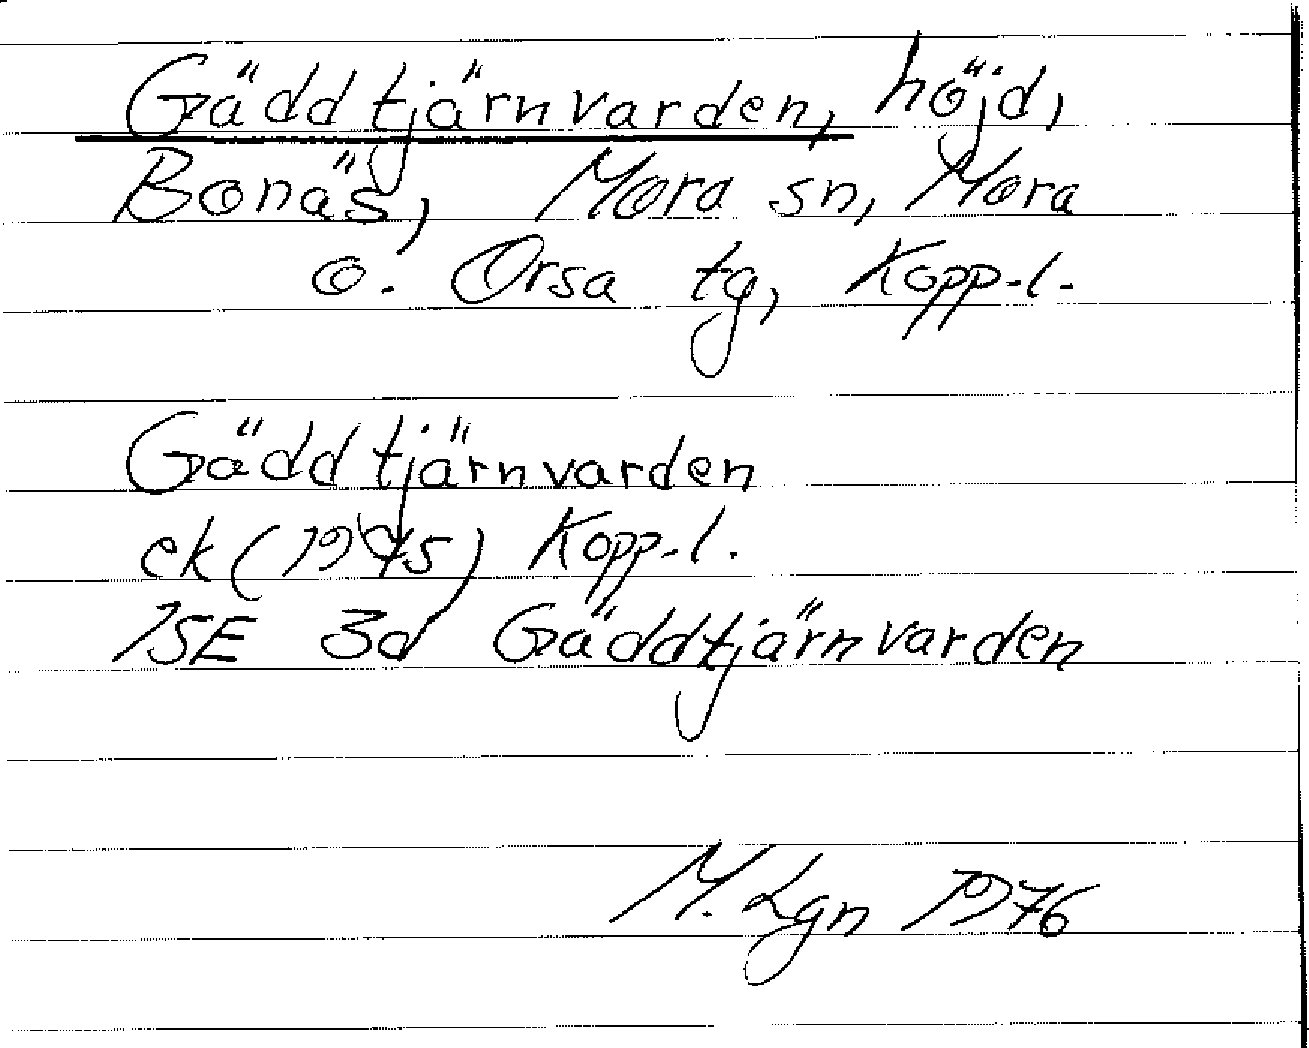 Gäddtjärnvarden, höjd,
Bonäs, Mora sn, Mora
o. Orsa tg, Kopp.l.
Gäddtjärnvarden
ek (1975) Kopp.l.
15E 3d Gäddtjärnvarden
M. Lgn 1976